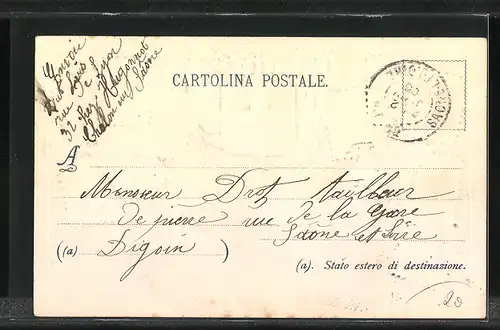 Envoie
rue de Lyon
32 chez Hugonnot
Chalon sur Saône
CARTOLINA POSTALE.
A
Monsieur Drot tailleur
de pierre rue de la Gare
(a) Digoin ) Saône et Loire
(a). Stato estero di destinazione.
20